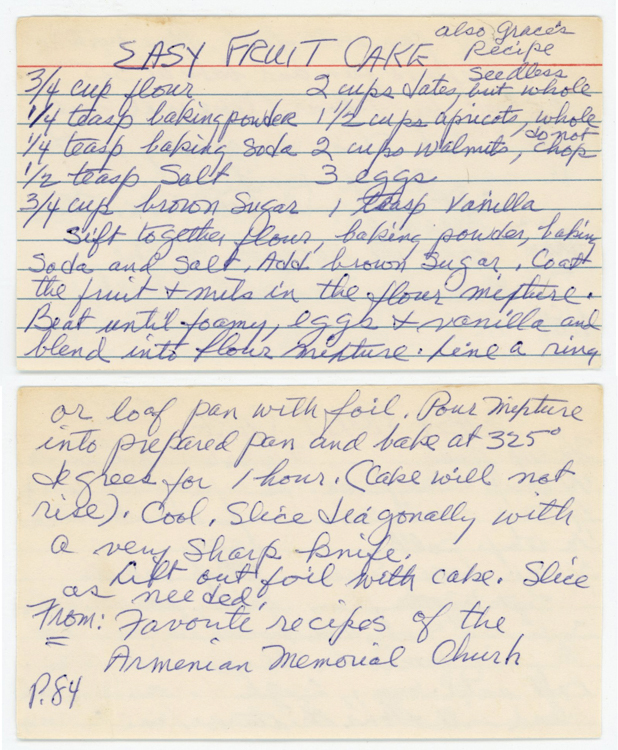 EASY FRUIT CAKE also Grace's Recipe
3/4 cup flour 2 cups dates, seedless but whole
1/4 teasp baking powder 1 1/2 cups apricots, whole
1/4 teasp baking soda 2 cups walnuts, do not chop
1/2 teasp Salt 3 eggs
3/4 cup brown Sugar 1 teasp Vanilla
Sift together flour, baking powder, baking
Soda and Salt. Add brown Sugar. Coat
the fruit + nuts in the flour mixture.
Beat until foamy, eggs + vanilla and
blend into flour mixture. Line a ring
or loaf pan with foil. Pour mixture
into prepared pan and bake at 325°
degrees for 1 hour. (Cake will not
rise). Cool. Slice diagonally with
a very sharp knife.
Lift out foil with cake. Slice
as needed.
From: Favorite recipes of the
Armenian Memorial Churh
P. 84